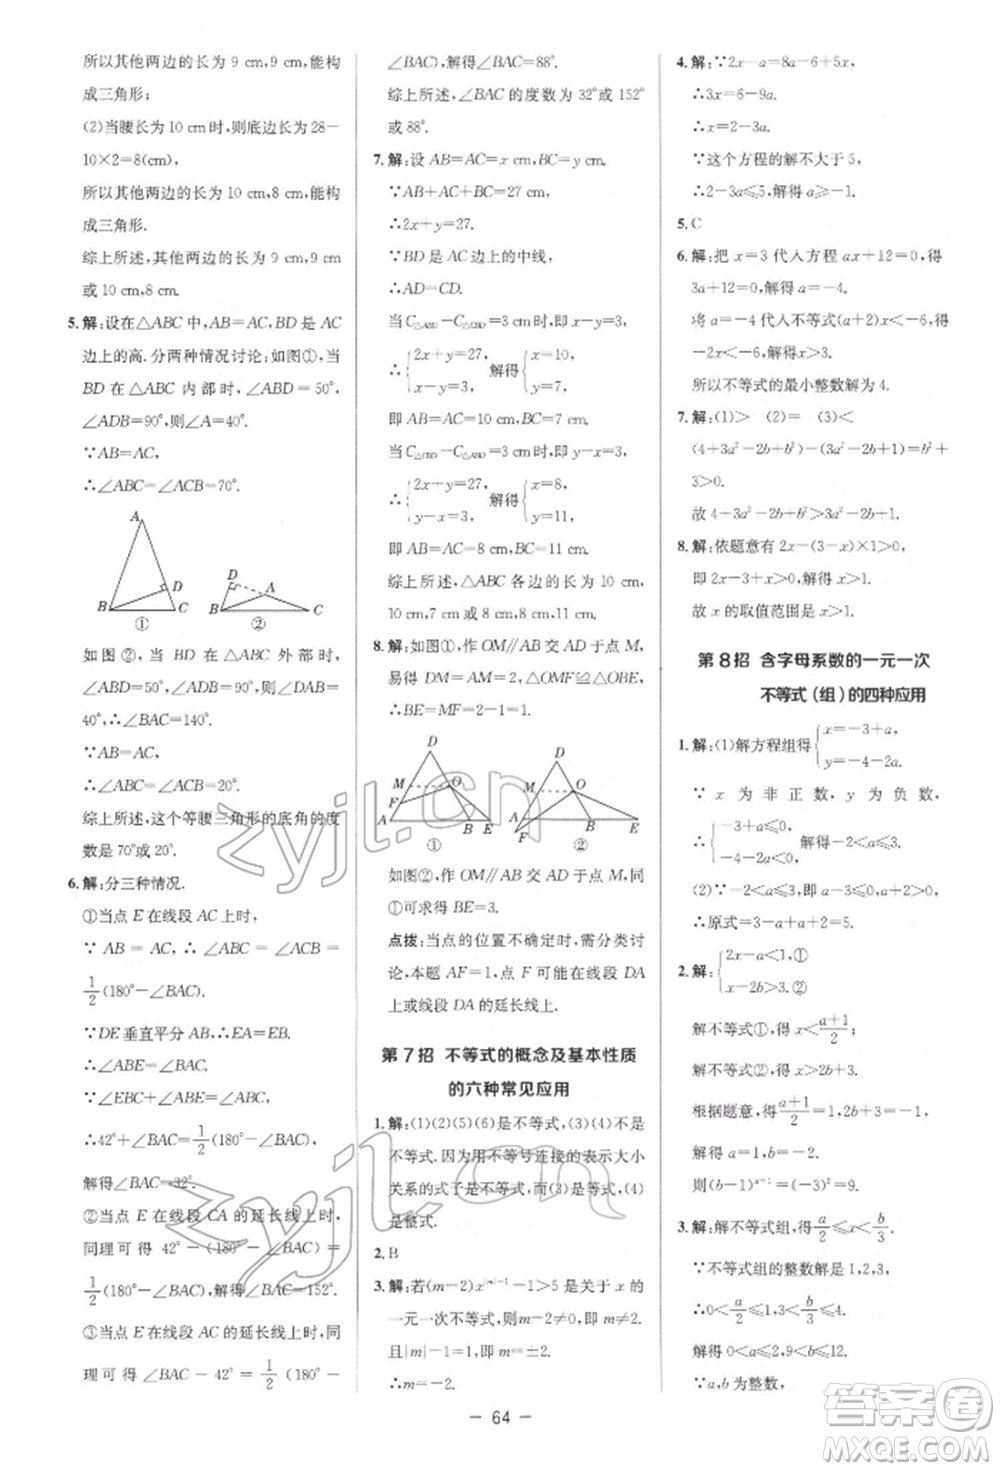 所以其他两边的长为 9 cm,9 cm,能构
成三角形;
(2)当腰长为 10 cm时,则底边长为28-
10×2=8(cm),
所以其他两边的长为 10 cm,8 cm,能构
成三角形.
综上所述,其他两边的长为 9 cm,9 cm
或 10 cm,8 cm.
5.解:设在△ABC 中,AB=AC,BD 是 AC
边上的高.分两种情况讨论:如图①,当
BD 在△ABC 内部时,∠ABD=50°,
∠ADB=90°,则∠A=40°.
∵AB=AC,
∴∠ABC=∠ACB=70°.
A
D
B
C
①
D
A
B
C
②
如图②,当 BD 在△ABC 外部时,
∠ABD=50°,∠ADB=90°,则∠DAB=
40°,∴∠BAC=140°.
∵AB=AC,
∴∠ABC=∠ACB=20°.
综上所述,这个等腰三角形的底角的度
数是70°或20°.
6.解:分三种情况.
①当点 E 在线段 AC 上时,
∵ AB = AC, ∴ ∠ABC = ∠ACB =
1/2(180°-∠BAC).
∵DE 垂直平分 AB,∴EA=EB.
∴∠ABE=∠BAC.
∵∠EBC+∠ABE=∠ABC,
∴42°+∠BAC=1/2(180°-∠BAC),
解得∠BAC=32°.
②当点 E 在线段 CA 的延长线上时,
同理可得 42°-(180°-∠BAC)=
1/2(180°-∠BAC),解得∠BAC=152°.
③当点 E 在线段 AC 的延长线上时,同
理可得 ∠BAC-42°=1/2(180°-
∠BAC),解得∠BAC=88°.
综上所述,∠BAC 的度数为 32°或 152°
或 88°.
7.解:设 AB=AC=x cm,BC=y cm.
∵AB+AC+BC=27 cm,
∴2x+y=27.
∵BD 是 AC 边上的中线,
∴AD=CD.
当 C△ABD-C△CBD=3 cm时,即 x-y=3,
∴{2x+y=27, x-y=3, 解得{x=10, y=7,
即 AB=AC=10 cm,BC=7 cm.
当 C△CBD-C△ABD=3 cm时,即 y-x=3,
∴{2x+y=27, y-x=3, 解得{x=8, y=11,
即 AB=AC=8 cm,BC=11 cm.
综上所述,△ABC 各边的长为 10 cm,
10 cm,7 cm 或 8 cm,8 cm,11 cm.
8.解:如图①,作 OM∥AB 交 AD 于点 M,
易得 DM=AM=2,△OMF≌△OBE,
∴BE=MF=2-1=1.
D
M
O
F
A
B
E
①
D
M
O
A
F
B
E
②
如图②,作 OM∥AB 交 AD 于点 M,同
①可求得 BE=3.
点拨:当点的位置不确定时,需分类讨
论,本题 AF=1,点 F 可能在线段 DA
上或线段 DA 的延长线上.
第7招 不等式的概念及基本性质
的六种常见应用
1.解:(1)(2)(5)(6)是不等式,(3)(4)不是
不等式.因为用不等号连接的表示大小
关系的式子是不等式,而(3)是等式,(4)
是整式.
2.B
3.解:若(m-2)x|m|-1-1>5 是关于 x 的
一元一次不等式,则m-2≠0,即m≠2,
且|m|-1=1,即 m=±2.
∴m=-2.
4.解:∵2x-a=8a-6+5x,
∴3x=6-9a.
∴x=2-3a.
∵这个方程的解不大于 5,
∴2-3a≤5,解得 a≥-1.
5.C
6.解:把 x=3 代入方程 ax+12=0,得
3a+12=0,解得 a=-4.
将 a=-4 代入不等式(a+2)x<-6,得
-2x<-6,解得 x>3.
所以不等式的最小整数解为 4.
7.解:(1)> (2)= (3)<
(4+3a²-2b+b²)-(3a²-2b+1)=b²+
3>0.
故 4+3a²-2b+b²>3a²-2b+1.
8.解:依题意有 2x-(3-x)×1>0,
即 2x-3+x>0,解得 x>1.
故 x 的取值范围是 x>1.
第8招 含字母系数的一元一次
不等式(组)的四种应用
1.解:(1)解方程组得{x=-3+a, y=-4-2a.
∵ x 为非正数,y 为负数,
∴{-3+a≤0, -4-2a<0. 解得-2<a≤3.
(2)∵-2<a≤3,即 a-3≤0,a+2>0,
∴原式=3-a+a+2=5.
2.解:{2x-a<1,① x-2b>3.②
解不等式①,得 x<(a+1)/2.
解不等式②,得 x>2b+3.
根据题意,得 (a+1)/2=1,且 2b+3=-1,
解得 a=1,b=-2.
则(b-1)ᵃ⁺¹=(-3)²=9.
3.解:解不等式组,得 a/2≤x<b/3.
∵不等式组的整数解是 1,2,3,
∴0<a/2≤1,3<b/3≤4.
解得0<a≤2,9<b≤12.
∵a,b 为整数,
- 64 -
zyjl.cn
zyjl.cn
答案圈
MXQE.COM